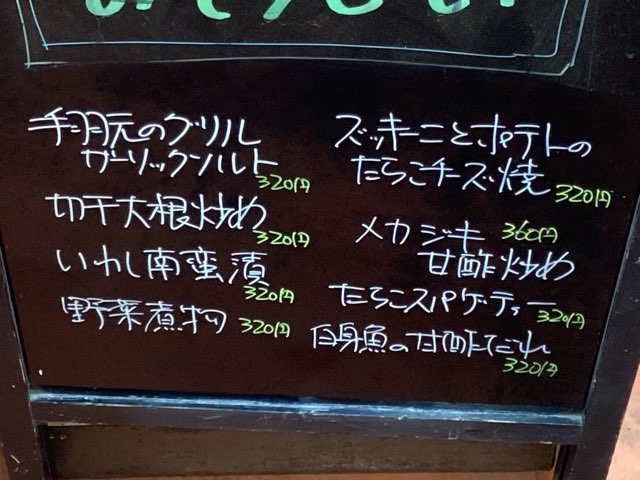 手羽元のグリル
ガーリックソルト
320円
切干大根炒め
320円
いわし南蛮漬
320円
野菜煮物 320円
ズッキーニとポテトの
たらこチーズ焼 320円
メカジキ 360円
甘酢炒め
たらこスパゲティー
320円
白身魚の甘酢だれ
320円